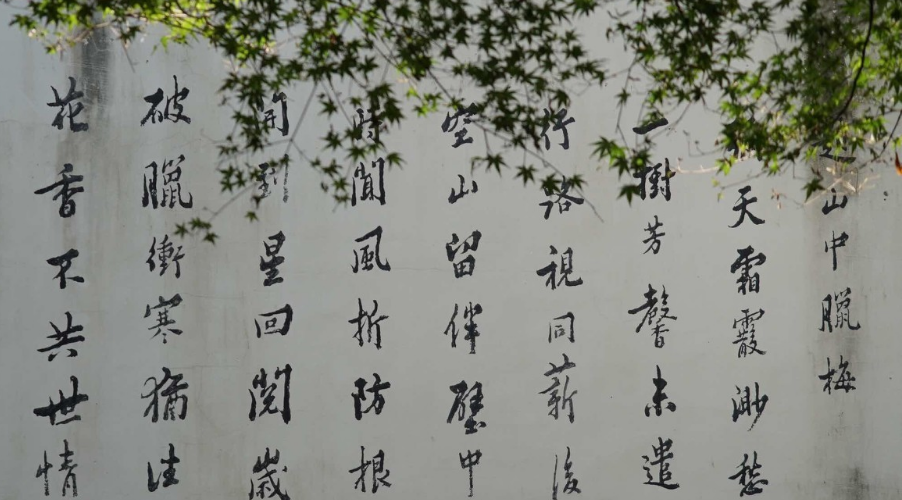 山中臘梅
天霜霰渺愁
一樹芳馨未遣
行路視同薪後
空山留伴壁中
時聞風折防根
開到星回閱歲
破臘衝寒猶往
花香不共世情